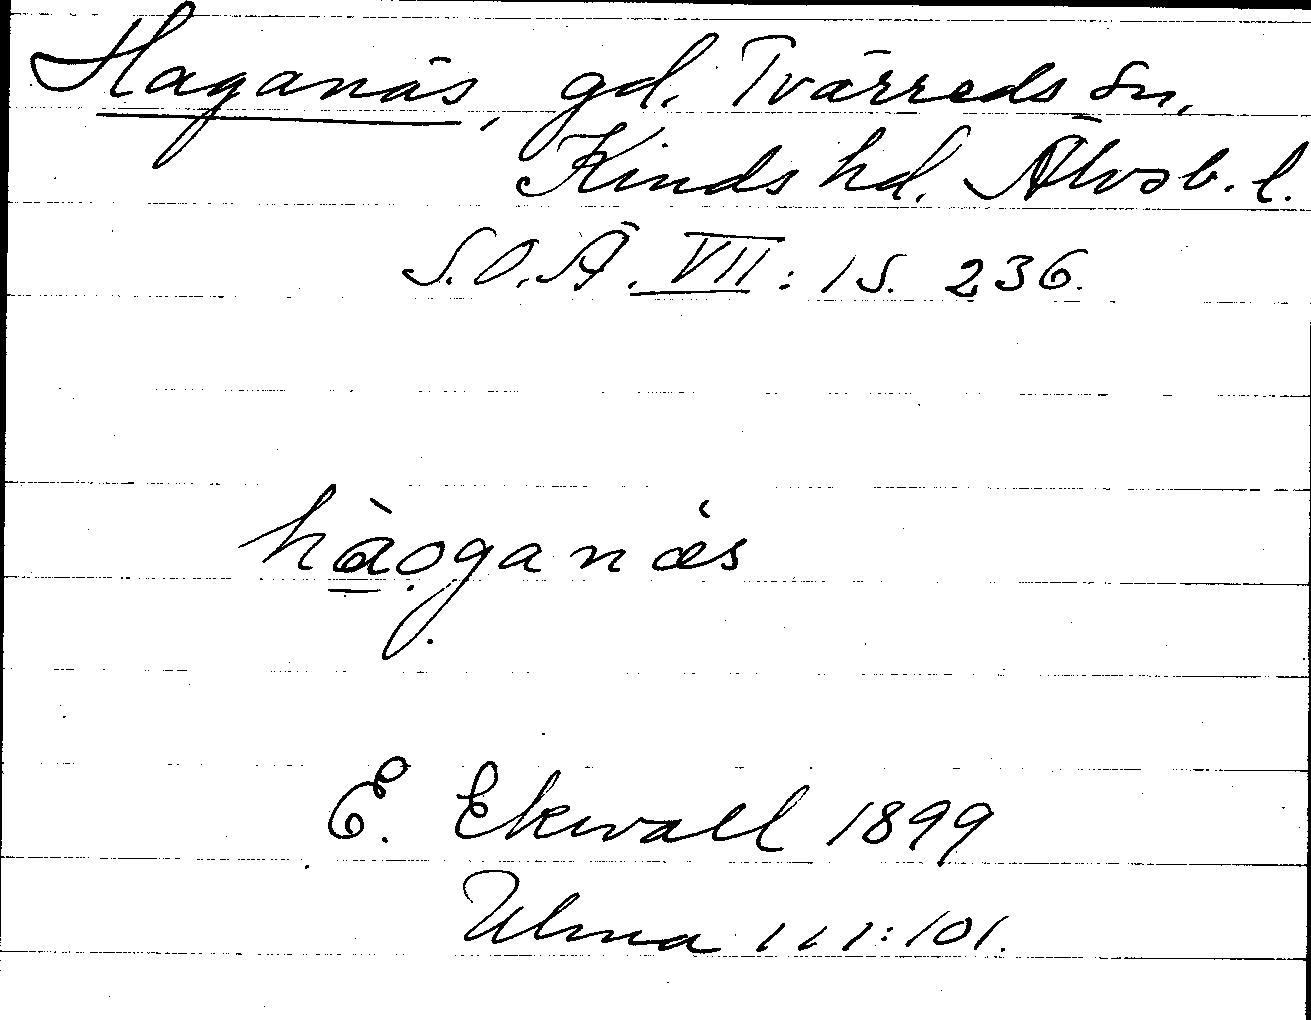 Haganäs, gd. Tvärreds sn,
Kinds hd. Älvsb. l.
S.O.Ä. VII: 1 S. 236.
hàọganæs
E. Ekwall 1899
Ulma 111:101.